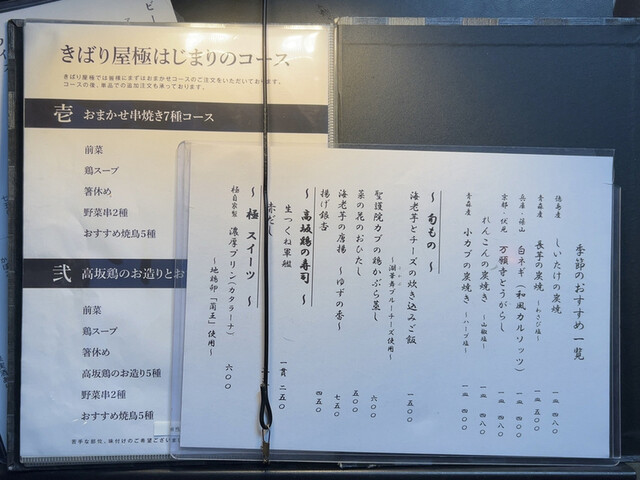 きばり屋極はじまりのコース
きばり屋極では皆様にまずはおまかせコースのご注文をいただいております。
コースの後、単品での追加注文も承っております。
壱 おまかせ串焼き7種コース
前菜
鶏スープ
箸休め
野菜串2種
おすすめ焼鳥5種
弐 高坂鶏のお造りとお
前菜
鶏スープ
箸休め
高坂鶏のお造り5種
野菜串2種
おすすめ焼鳥5種
苦手な部位、味付けのご希望ございまし
季節のおすすめ一覧
徳島産 しいたけの炭焼 一本 四八〇
青森産 長芋の炭焼 ~わさび塩~ 一本 五〇〇
兵庫・篠山 白ネギ(和風カルソッツ) 一本 四八〇
京都・伏見 万願寺とうがらし 一本 四八〇
れんこんの炭焼き ~山椒塩~ 一本 四八〇
青森産 小カブの炭焼き ~ハーブ塩~ 一本 四〇〇
~ 旬もの ~
海老芋とチーズの炊き込みご飯 一五〇〇
ブルーチーズ使用~
聖護院カブの鶏かぶら蒸し 六〇〇
菜の花のおひたし 五〇〇
海老芋の唐揚 ~ゆずの香~ 七五〇
揚げ銀杏 四五〇
~ 高坂鶏の寿司 ~
生つくね軍艦 一貫 二五〇
赤だし
~ 極 スイーツ ~
極自家製 濃厚プリン(カタラーナ) 六〇〇
~地鶏卵「蘭王」使用~